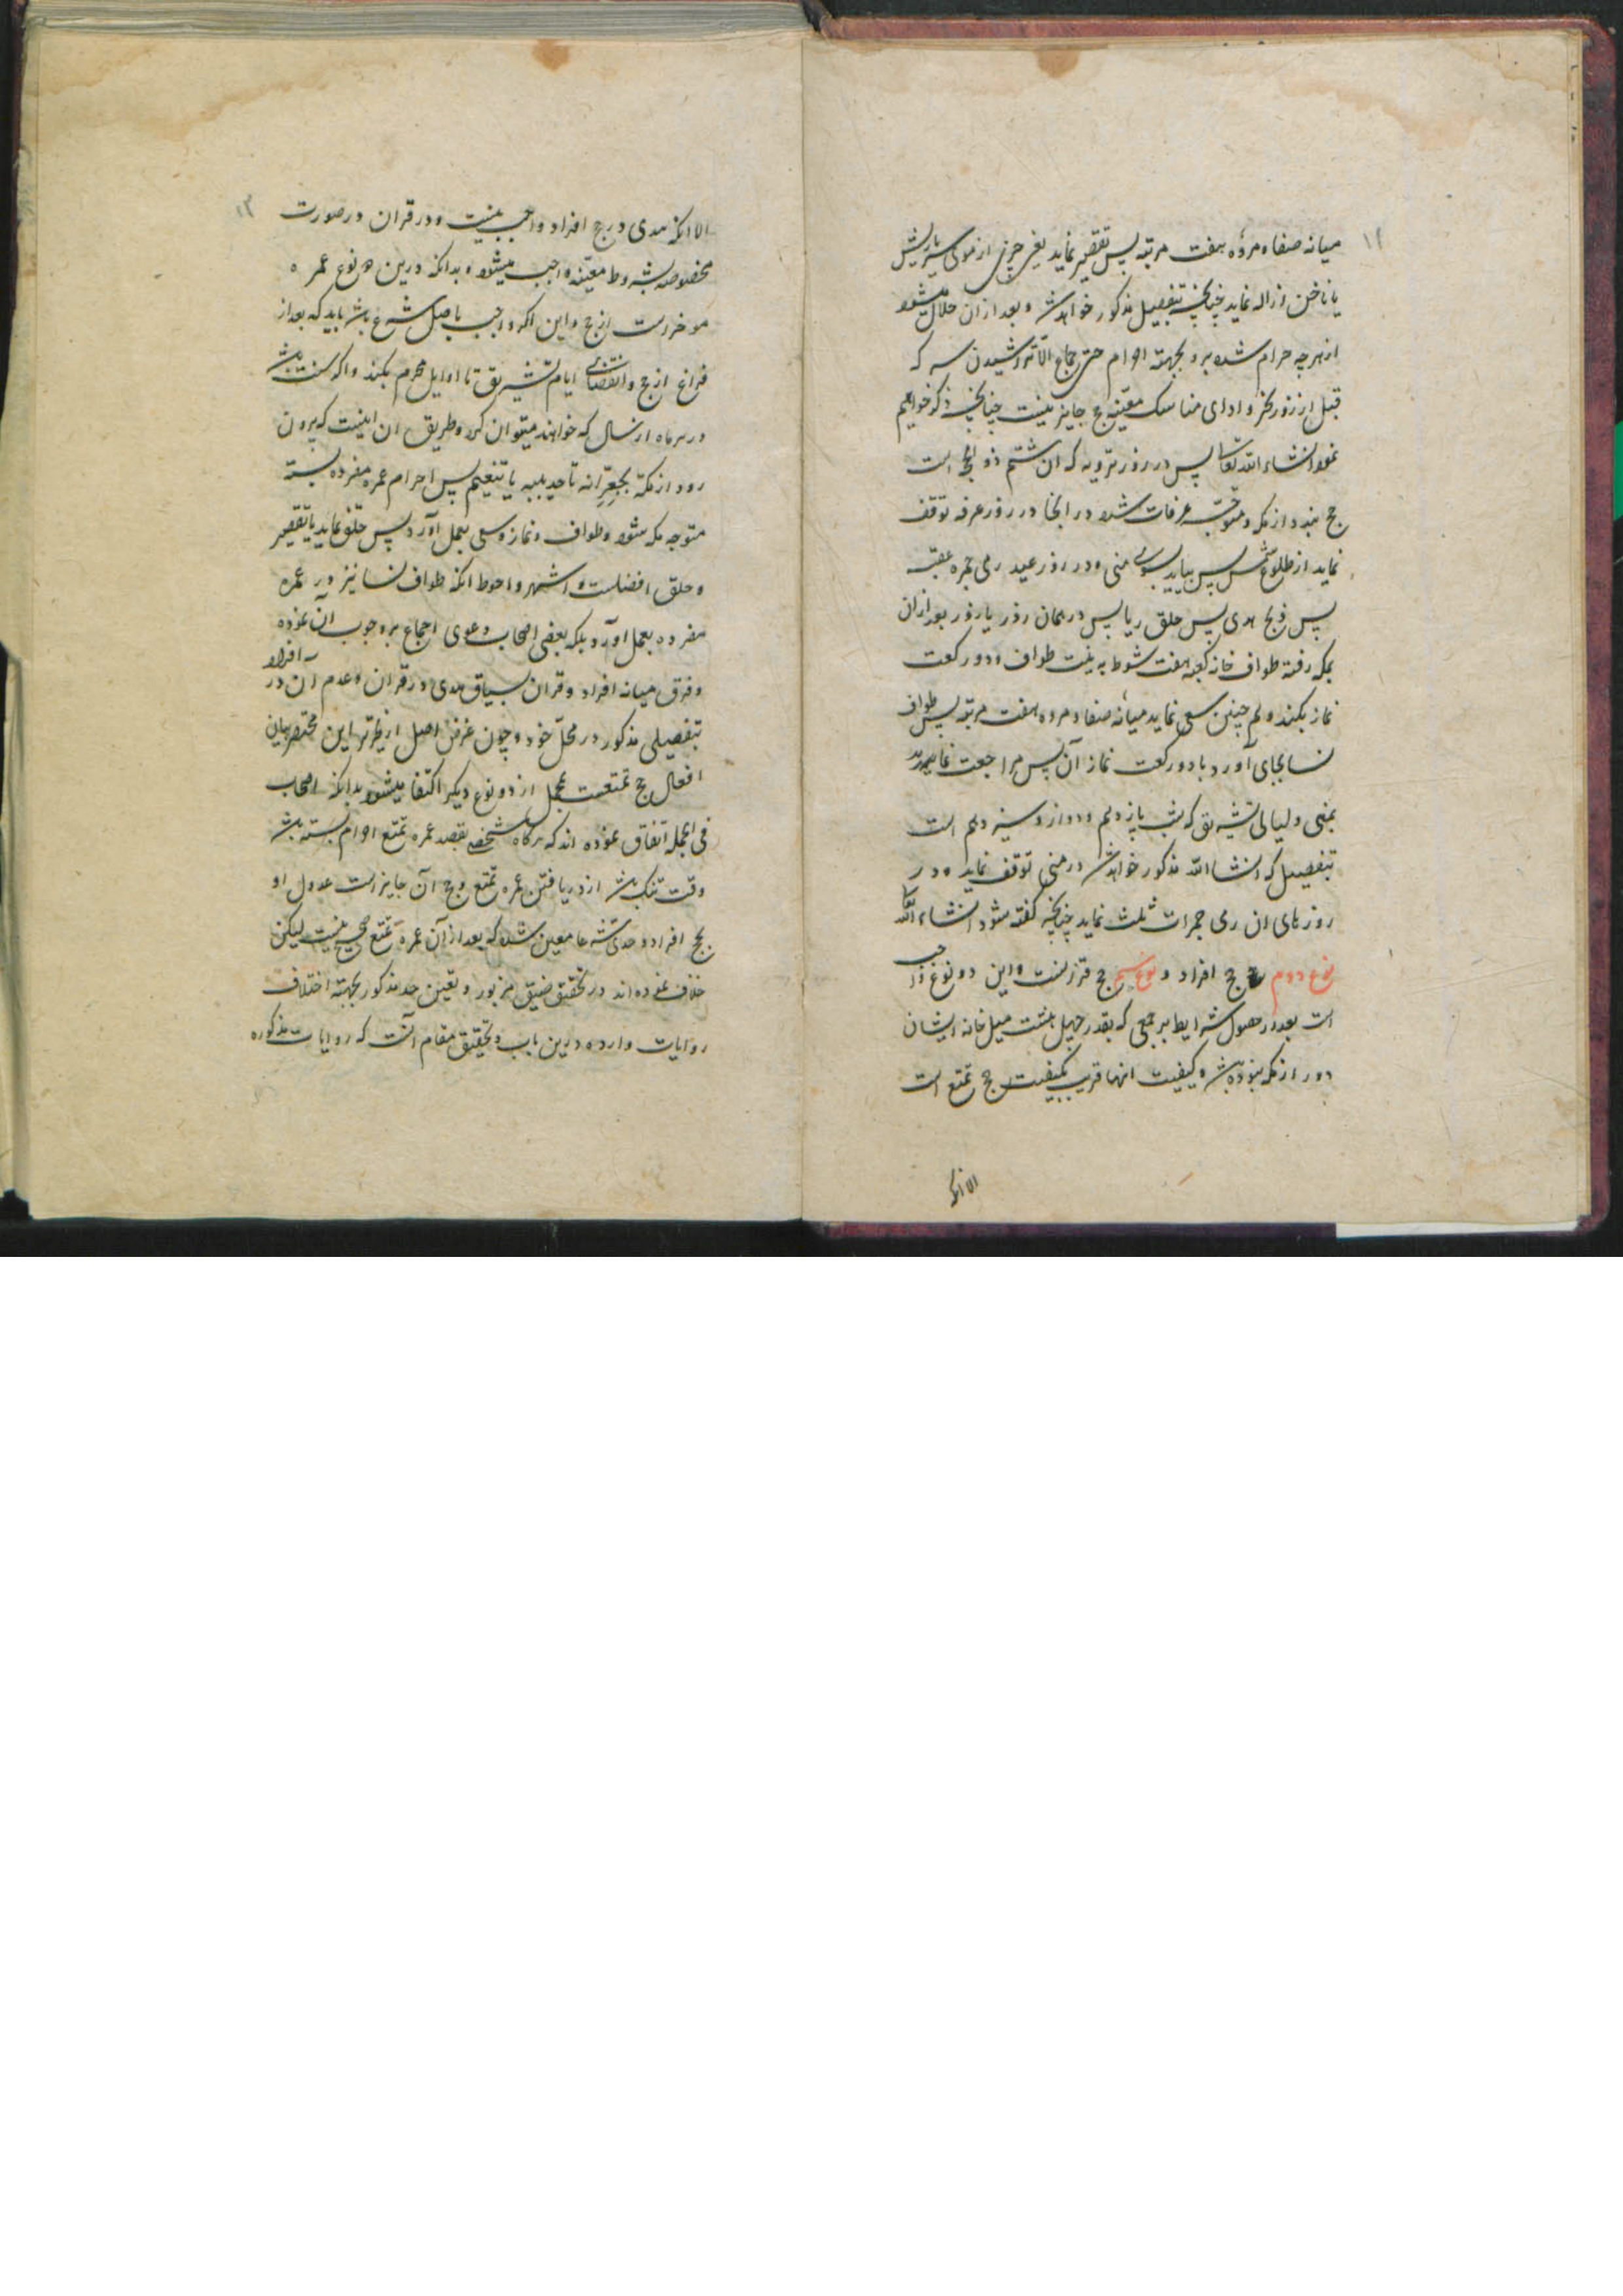 ۱۲
میانه صفا و مروه هفت مرتبه پس تقصیر نماید یعنی چیزی از موی سر یا ریش
یا ناخن ازاله نماید چنانچه بتفصیل مذکور خواهد شد و بعد از ان حلال میشود
از هر چه حرام شده برو بجهته احرام حتی جماع الا تراشیدن سر که
قبل از روز نحر و ادای مناسک معینه حج جایز نیست چنانچه ذکر خواهیم
نمود انشاء الله تعالی پس در روز ترویه که ان هشتم ذو الحجه است
حج بندد از مکه و متوجه عرفات شده در انجا در روز عرفه توقف
نماید از طلوع شمس پس بیاید بسوی منی و در روز عید رمی جمره عقبه
پس ذبح هدی پس حلق ریا پس در همان روز یا روز بعد از ان
بمکه رفته طواف خانه کعبه هفت شوط به نیت طواف و دو رکعت
نماز بکند و هم چنین سعی نماید میانه صفا و مروه هفت مرتبه پس طواف
نسا بجای آورد با دو رکعت نماز آن پس مراجعت نماید
بمنی و لیالی تشریق که شب یازدهم و دوازدهم و سیزدهم است
بتفصیل که انشا الله مذکور خواهد شد در منی توقف نماید و در
روزهای ان رمی جمرات ثلث نماید چنانچه گفته شود انشاء الله تعالی
نوع دوم حج افراد و نوع سیم حج قرانست و این دو نوع واجب
است بعد از حصول شرایط بر جمعی که بقدر چهل هشت میل خانه ایشان
دور از مکه نبوده باشد و کیفیت انها قریب بکیفیت حج تمتع است
الا انکه
۱۳
الا انکه هدی در حج افراد واجب نیست و در قران در صورت
مخصوصه بشروط معینه واجب میشود و بدانکه درین دو نوع عمره
موخر است از حج و این اگر واجب باصل شرع باشد باید که بعد از
فراغ از حج و انقضای ایام تشریق تا اوایل محرم بکند و اگر سنت باشد
در هر ماه از سال که خواهند میتوان کرد و طریق ان اینست که بیرون
رود از مکه بجعرانه تا حدیبیه یا تنعیم پس احرام عمره مفرده بسته
متوجه مکه شود و طواف و نماز و سعی بعمل آورد پس حلق نماید یا تقصیر
و حلق افضلست و اشهر و احوط انکه طواف نسا نیز در عمره
مفرده بعمل اورد بلکه بعضی اصحاب دعوی اجماع بر وجوب آن نموده
و فرق میانه افراد و قران بسیاق هدی در قران و عدم ان در افراد
بتفصیلی مذکور در محل خود و چون غرض اصل از تحریر این مختصر بیان
افعال حج تمتعست بمجمل از دو نوع دیگر اکتفا میشود بدانکه اصحاب
فی الجمله اتفاق نموده اند که هرگاه شخصی بقصد عمره تمتع احرام بسته باشد
وقت تنک باشد از دریافتن عمره تمتع و حج آن جایز است عدول او
بحج افراد و حدی شرعا معین شده که بعد از آن عمره تمتع صحیح نیست لیکن
خلاف نموده اند در تحقیق ضیق مزبور و تعین حد مذکور بجهته اختلاف
روایات وارده درین باب و تحقیق مقام آنست که روایات مذکوره